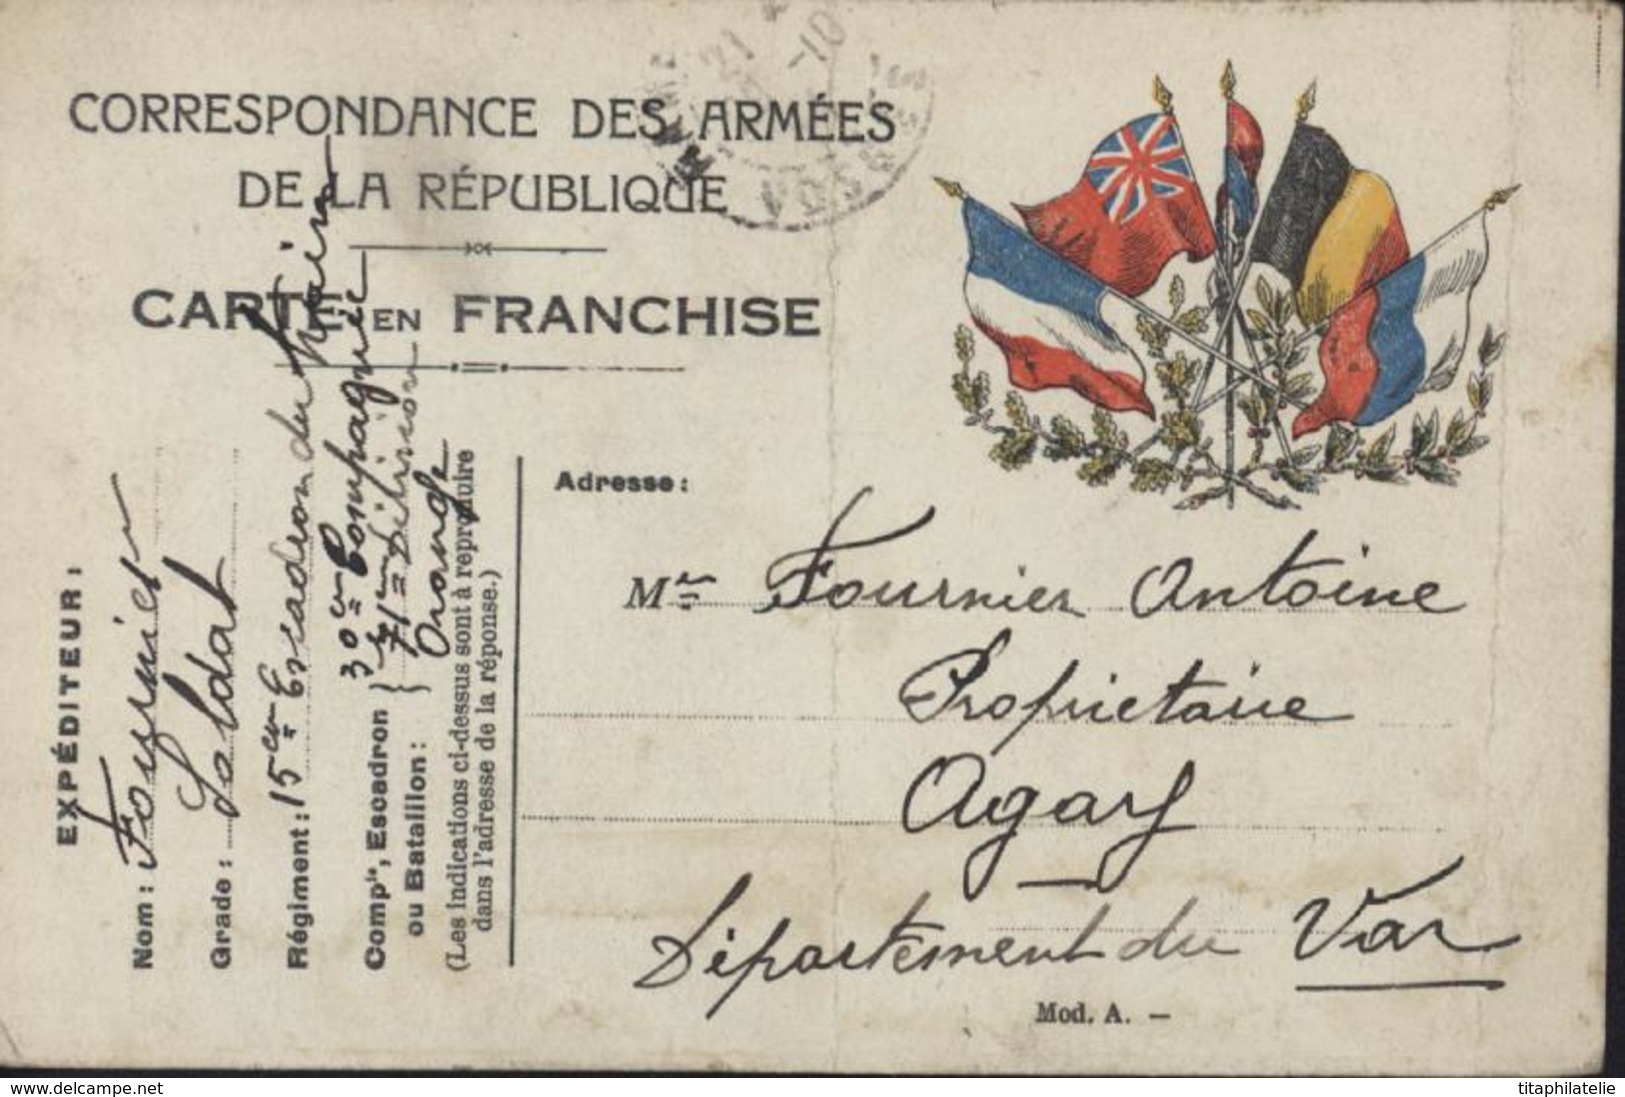 CORRESPONDANCE DES ARMÉES
DE LA RÉPUBLIQUE
CARTE EN FRANCHISE
EXPÉDITEUR :
Nom : Fournier
Grade : Soldat
Régiment : 15em Escadron du train
Comp<sup>ie</sup>, Escadron } 30em Compagnie
ou Bataillon : } 71em Division
Orange
(Les indications ci-dessus sont à reproduire
dans l'adresse de la réponse.)
Adresse :
Mer Fournier Antoine
Propriétaire
Agay
Département du Var
Mod. A. —
21 -10
www.delcampe.net
titaphilatelie